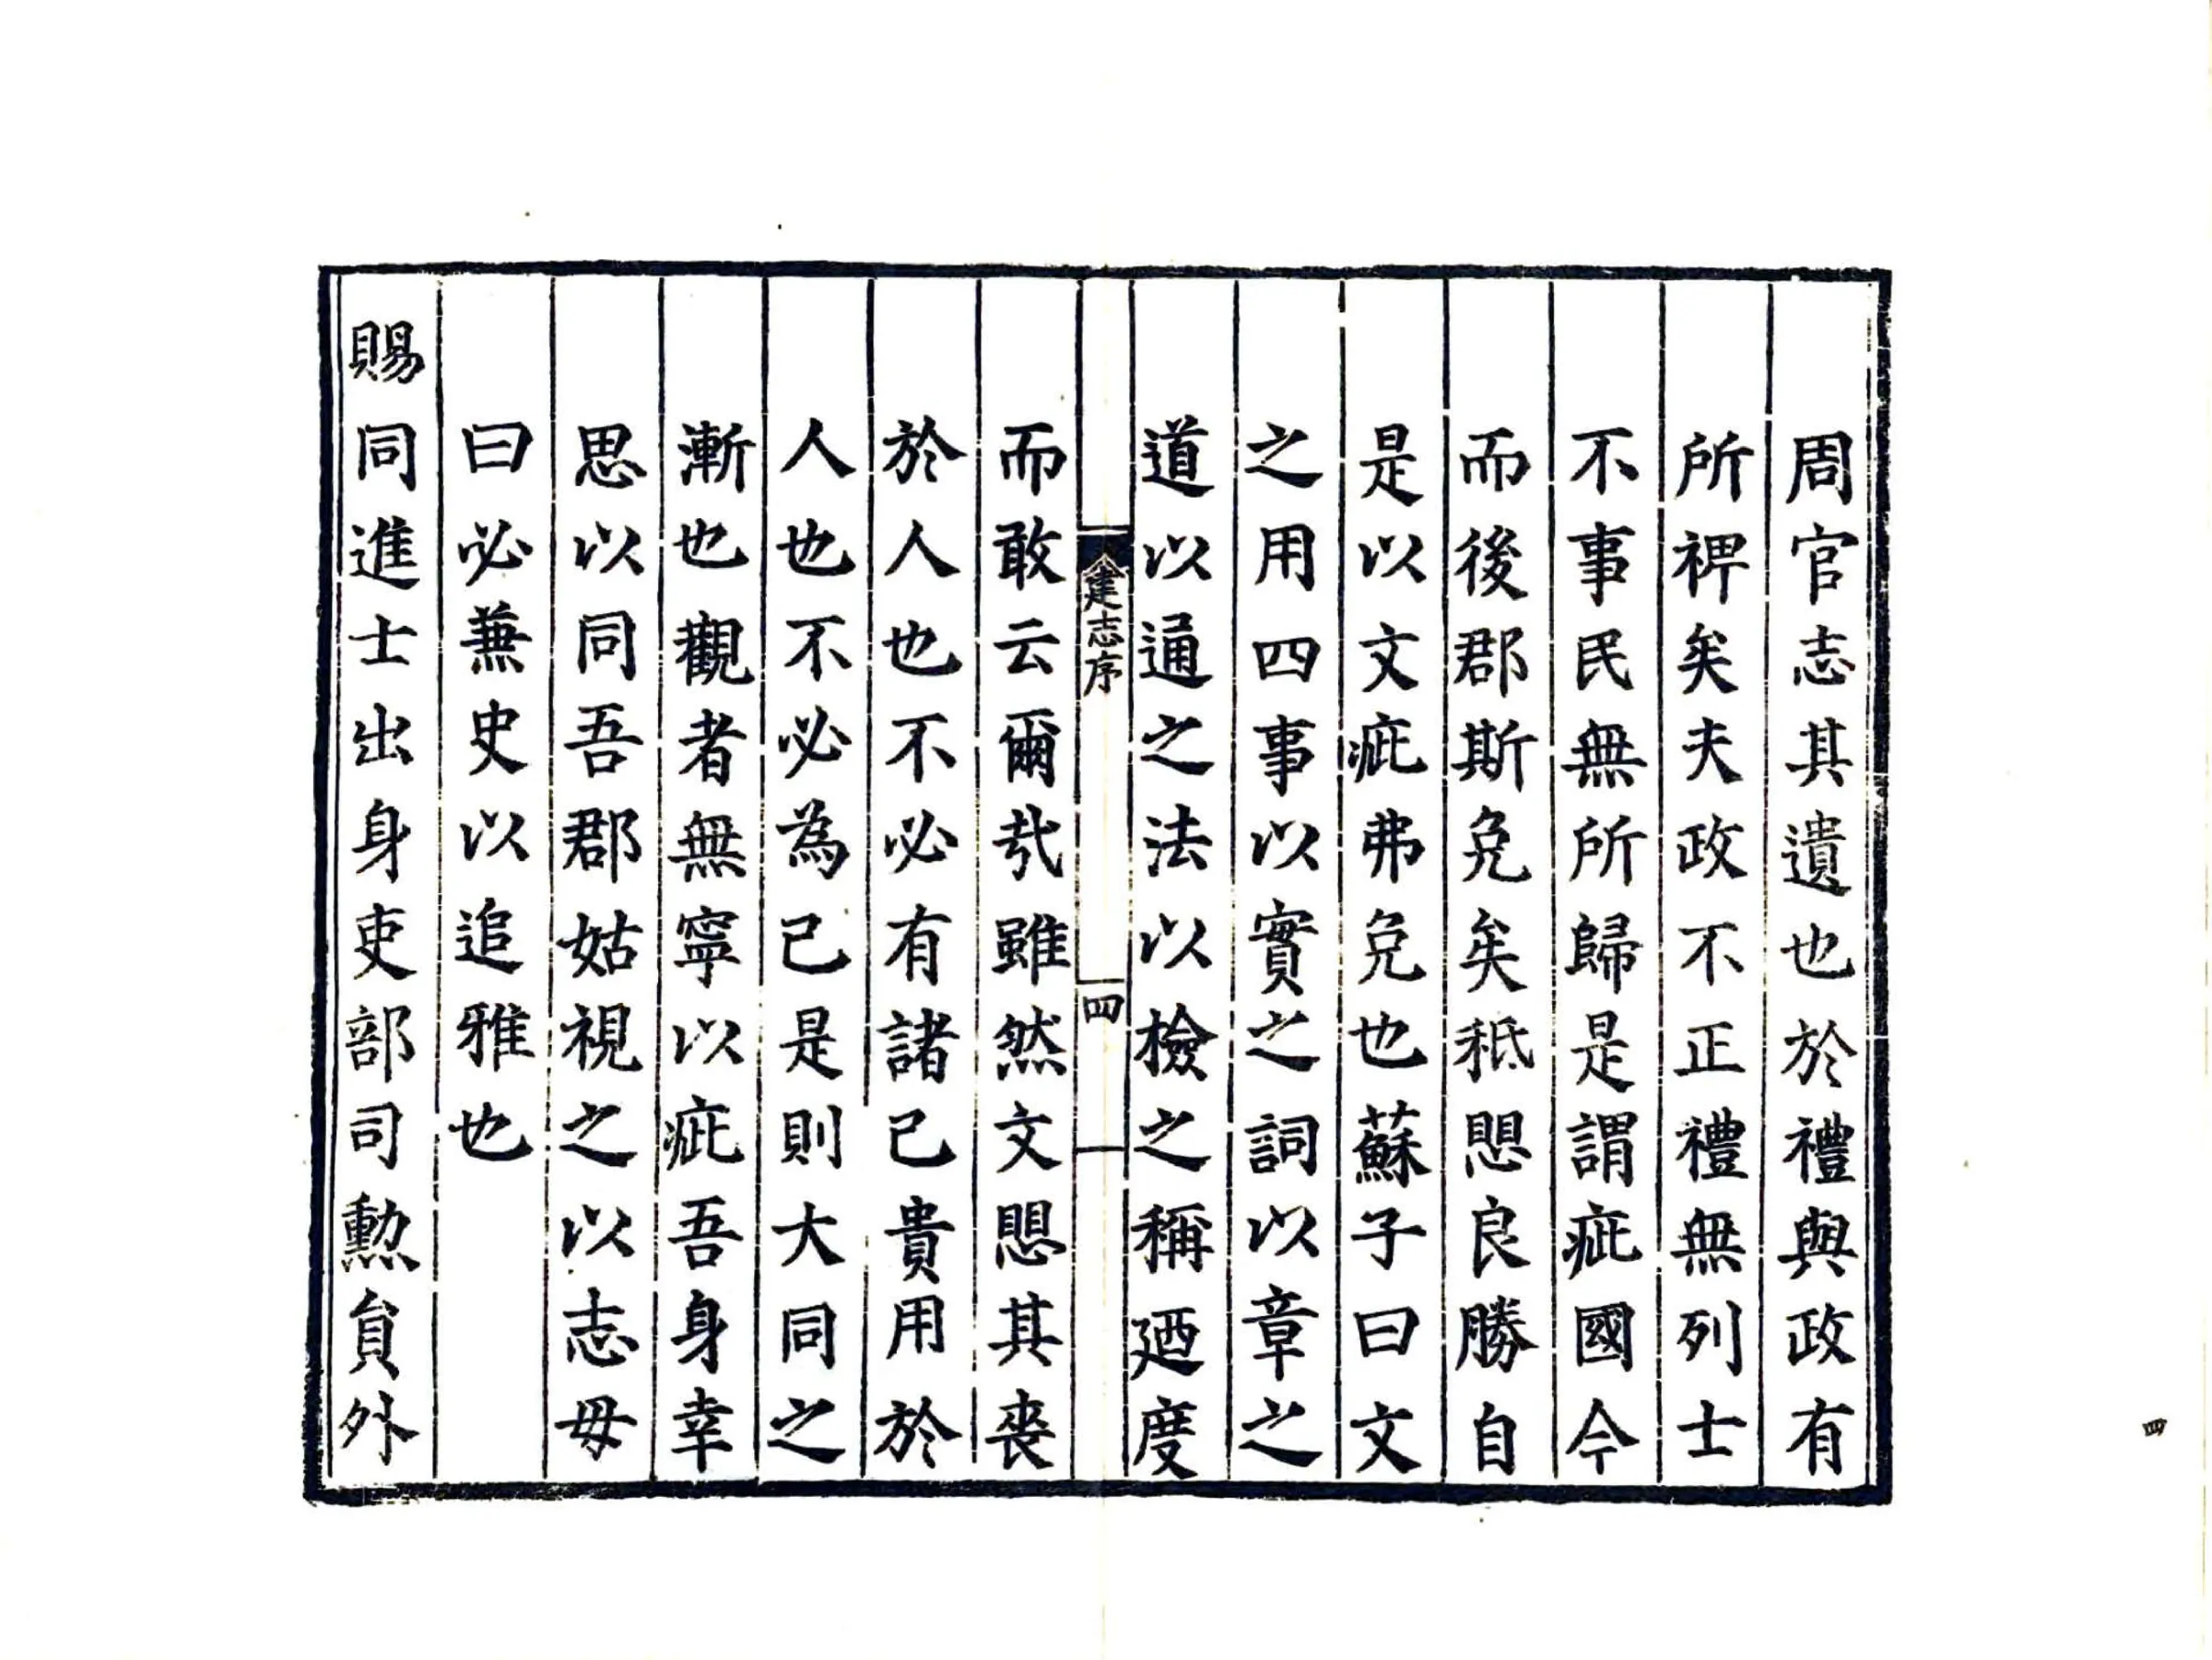 周官志其遺也於禮與政有
所裨矣夫政不正禮無列士
不事民無所歸是謂疵國今
而後郡斯免矣秪愳良勝自
是以文疵弗免也蘇子曰文
之用四事以實之詞以章之
道以通之法以檢之稱廼度
建志序
四
而敢云爾㢤雖然文愳其喪
於人也不必有諸己貴用於
人也不必為己是則大同之
漸也觀者無寧以疵吾身幸
思以同吾郡姑視之以志毋
曰必蒹史以追雅也
賜同進士出身吏部司勲貟外
四